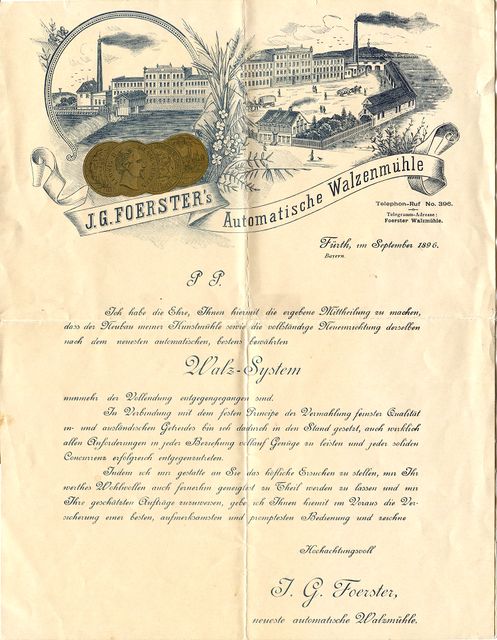 J.G. FOERSTER's
Automatische Walzenmühle
Telephon-Ruf No. 396.
Telegramm-Adresse:
Foerster Walzmühle.
Fürth, im September 1896.
Bayern.
P. P.
Ich habe die Ehre, Ihnen hiermit die ergebene Mittheilung zu machen,
dass der Neubau meiner Kunstmühle sowie die vollständige Neueinrichtung derselben
nach dem neuesten automatischen, bestens bewährten
Walz-System
nunmehr der Vollendung entgegengegangen sind.
In Verbindung mit dem festen Principe der Vermahlung feinster Qualität
in- und ausländischen Getreides bin ich dadurch in den Stand gesetzt, auch wirklich
allen Anforderungen in jeder Beziehung vollauf Genüge zu leisten und jeder soliden
Concurrenz erfolgreich entgegenzutreten.
Indem ich mir gestatte an Sie das höfliche Ersuchen zu stellen, mir Ihr
werthes Wohlwollen auch fernerhin geneigtest zu Theil werden zu lassen und mir
Ihre geschätzten Aufträge zuzuweisen, gebe ich Ihnen hiemit im Voraus die Ver-
sicherung einer besten, aufmerksamsten und promptesten Bedienung und zeichne
Hochachtungsvoll
J. G. Foerster,
neueste automatische Walzmühle.